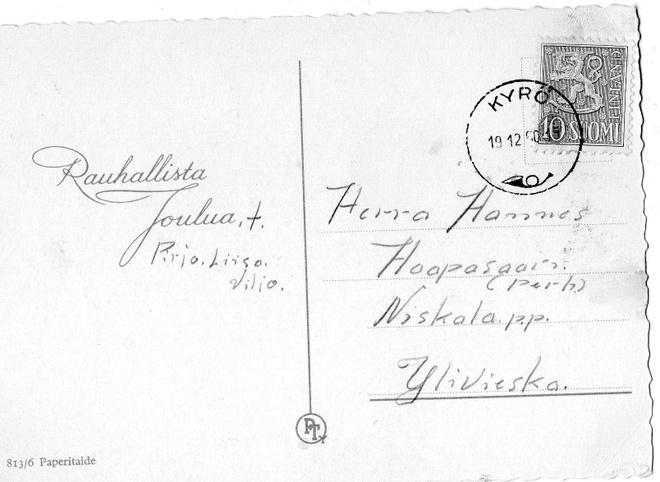 KYRÖ
19 12
10 SUOMI
FINLAND
Rauhallista
Joulua, +.
Pirjo. Liisa.
Viljo.
Herra Hannes
Haapasaari.
(Perh)
Niskala.p.p.
Ylivieska.
PT
813/6 Paperitaide